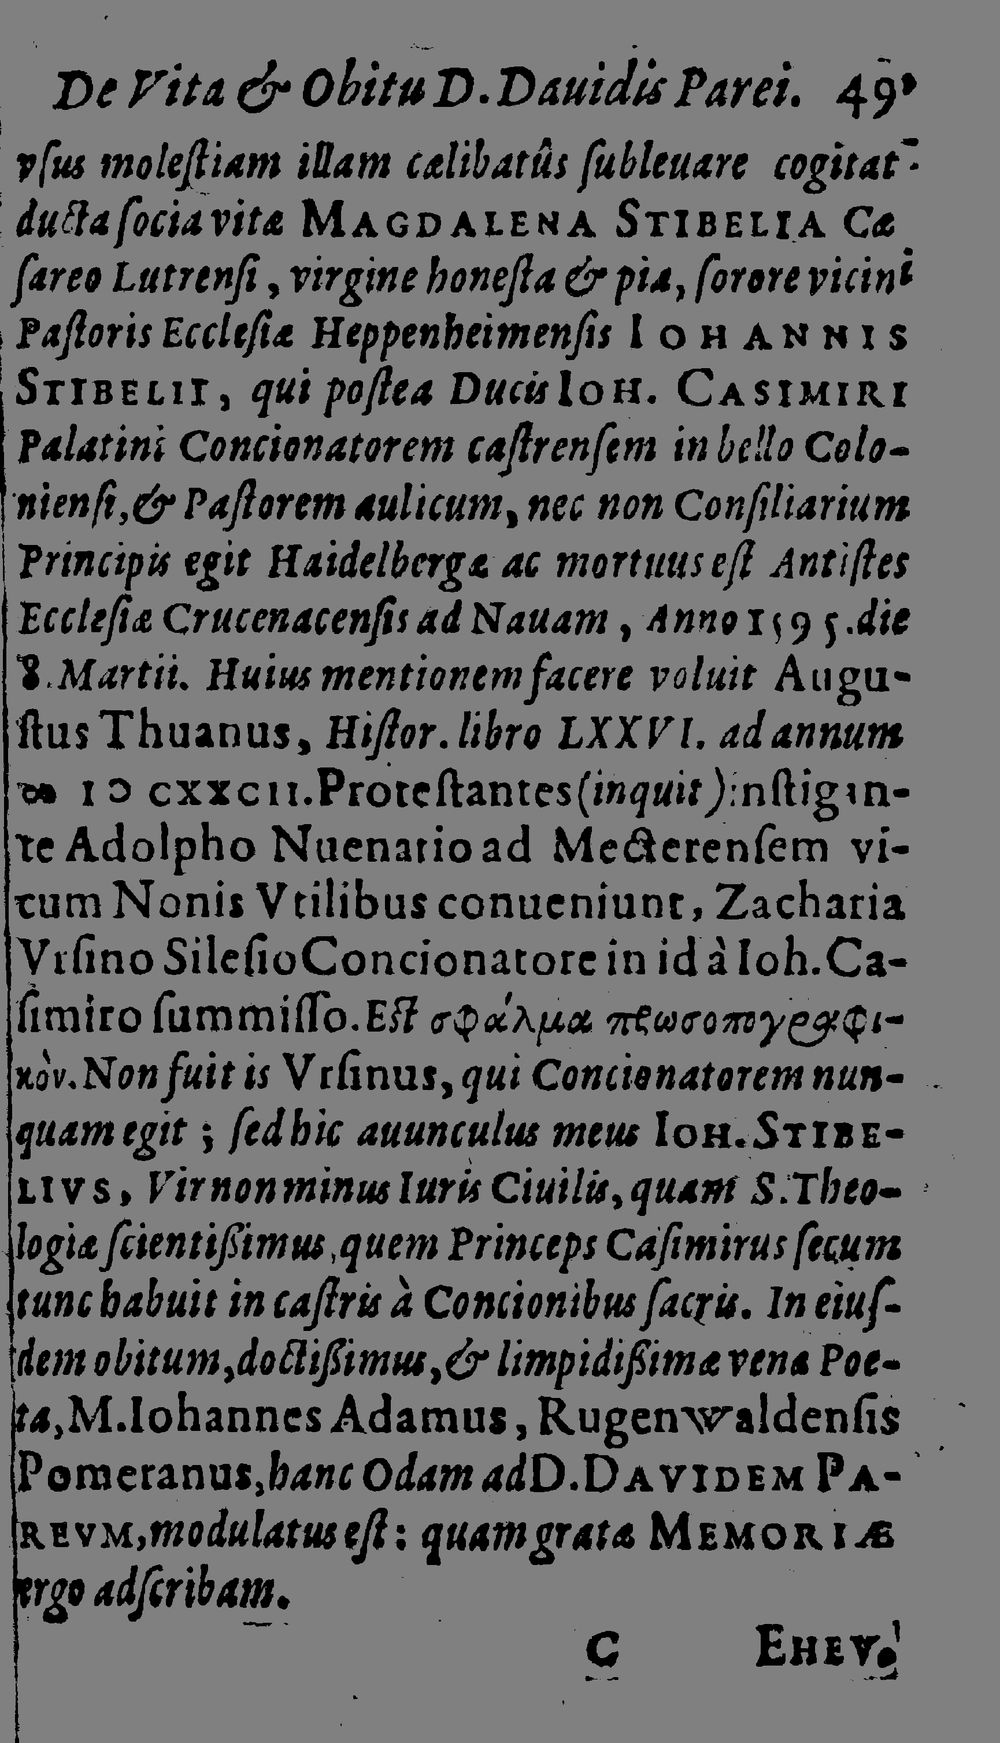 De Vita & Obitu D. Dauidis Parei. 49
vſus moleſtiam illam cælibatûs ſubleuare cogitat:
ducta ſocia vitæ MAGDALENA STIBELIA Cæ
ſareo Lutrenſi, virgine honeſta & pia, ſorore vicini
Paſtoris Eccleſiæ Heppenheimenſis IOHANNIS
STIBELII, qui poſtea Ducis IOH. CASIMIRI
Palatini Concionatorem caſtrenſem in bello Colo-
nienſi, & Paſtorem aulicum, nec non Conſiliarium
Principis egit Haidelbergæ ac mortuus eſt Antiſtes
Eccleſiæ Crucenacenſis ad Nauam, Anno 1595. die
8. Martii. Huius mentionem facere voluit Augu-
ſtus Thuanus, Hiſtor. libro LXXVI. ad annum
ↀ IↃ CXXCII. Proteſtantes (inquit) inſtigan-
te Adolpho Nuenario ad Mecterenſem vi-
cum Nonis Vtilibus conueniunt, Zacharia
Vrſino Sileſio Concionatore in id à Ioh. Ca-
ſimiro ſummiſſo. Eſt σφάλμα προσοπογραφι-
κὸν. Non fuit is Vrſinus, qui Concionatorem nun-
quam egit; ſed hic auunculus meus IOH. STIBE-
LIVS, Vir non minus Iuris Ciuilis, quam S. Theo-
logiæ ſcientiſſimus, quem Princeps Caſimirus ſecum
tunc habuit in caſtris à Concionibus ſacris. In eiuſ-
dem obitum, doctiſſimus, & limpidiſſimæ venæ Poe-
ta, M. Iohannes Adamus, Rugenwaldenſis
Pomeranus, hanc Odam ad D. DAVIDEM PA-
REVM, modulatus eſt: quam gratæ MEMORIÆ
ergo adſcribam.
C EHEV.